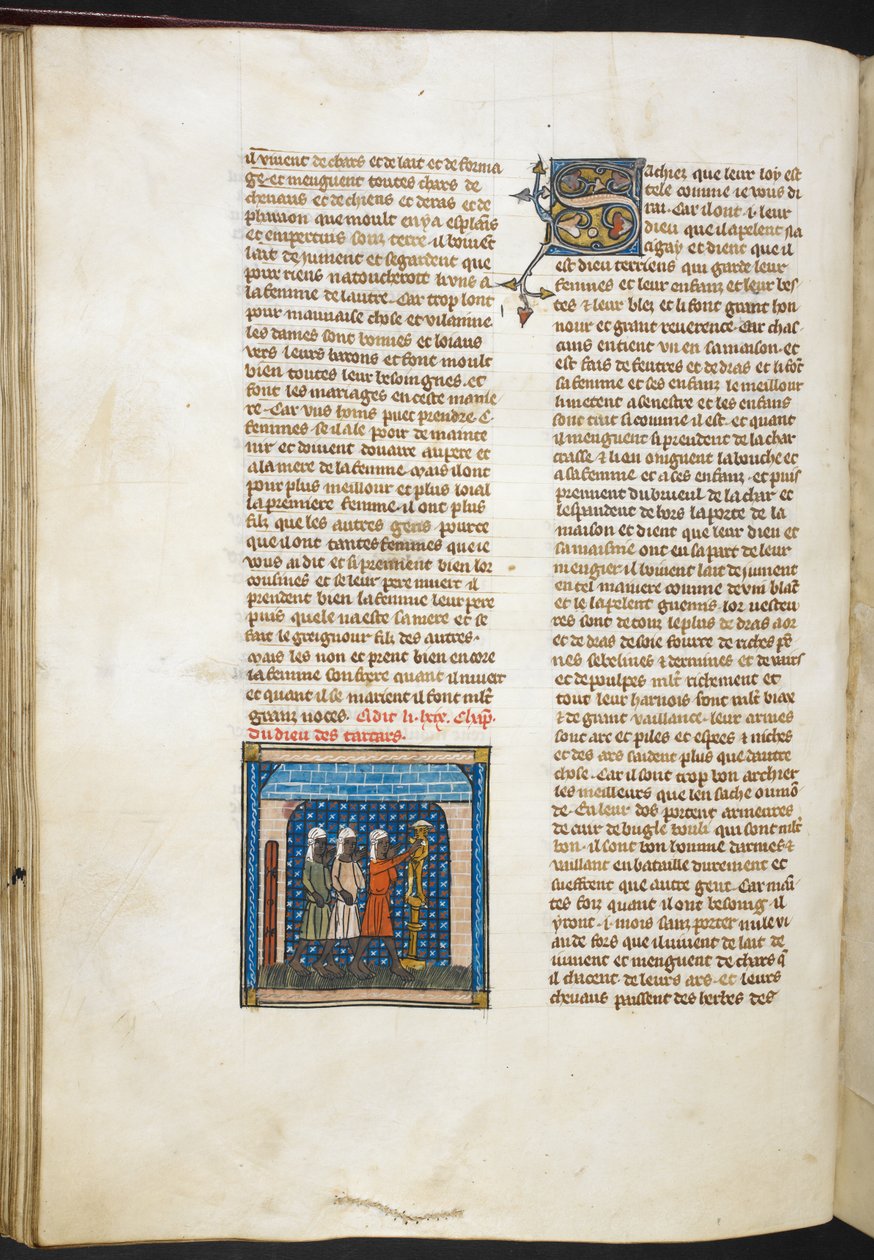 il viuent de chars et de lait et de forma
ge et menguent toutes chars de
cheuaus et de chiens et de ras et de
pharaon que moult en y a es plains
et en pertuis souz terre il boiuent
lait de iument et se gardent que
pour riens natoucheroit luns a
la femme de lautre. Car trop lont
pour mauuaise chose et vilainne
les dames sont bonnes et loiaus
vers leurs barons et font moult
bien toutes leur besoingnes. et
font les mariages en ceste manie
re. Car vns homs puet prendre .C.
femmes. se il a le pooir de mainte
nir et doiuent douaire au pere et
a la mere de la femme. mais il ont
pour plus meillour et plus loial
la premiere femme. il ont plus
filz que les autres gens pource
que il ont tantes femmes que ie
vous ai dit et si prennent bien lor
cousines et se leur pere muert il
prendent bien la femme leur pere
puis quele na este sa mere et se
fait le greignour filz des autres.
mais les non et prent bien encore
la femme son frere quant il muert
et quant il se marient il font mlt
granz noces. Ci dit li .lxix. Chap.
du dieu des tartars.
Sachiez que leur loy est
tele comme ie vous di
rai. Car il ont .i. leur
dieu que il apelent na
cigay et dient que il
est dieu terriens qui garde leur
femmes et leur enfanz et leur bes
tes & leur blez et li font grant hon
nour et grant reuerence. Car chas
cuns en tient vn en sa maison. et
est fais de feutres et de dras et li font
sa femme et ses enfanz le meillour
li metent a senestre et les enfans
sont tait si comme il est. et quant
il menguent si prendent de la char
crasse & li en oniguent la bouche et
a sa femme et a ses enfanz. et puis
prennent du brueil de la char et
lespandent de hors la porte de la
maison et dient que leur dieu et
sa maisnie ont eu sa part de leur
mengier. il boiuent lait de iument
en tel maniere comme de vin blanc
et le lapelent guemis. lor vesteu
res sont de tour le plus de dras a or
et de dras de soie fourre de riches pe
nes sebelines & dermines et de vairs
et de poulpes mlt richement et
tout leur harnois sont mlt biax
& de grant vaillance. leur armes
sont arc et piles et espees & miches
et des ars saident plus que dautre
chose. Car il sont trop bon archier
les meilleurs que len sache ou mon
de. En leur dos portent armeures
de cuir de bugle bouli qui sont mlt
bon. il sont bon homme darmes &
vaillant en bataille durement et
sueffrent que autre gent. Car main
tes foiz quant il ont besoing il
yront .i. mois sanz porter nule vi
ande fors que il viuent de lait de
iument et menguent de chars q
il chacent de leurs ars et leurs
cheuaus paissent des herbes des